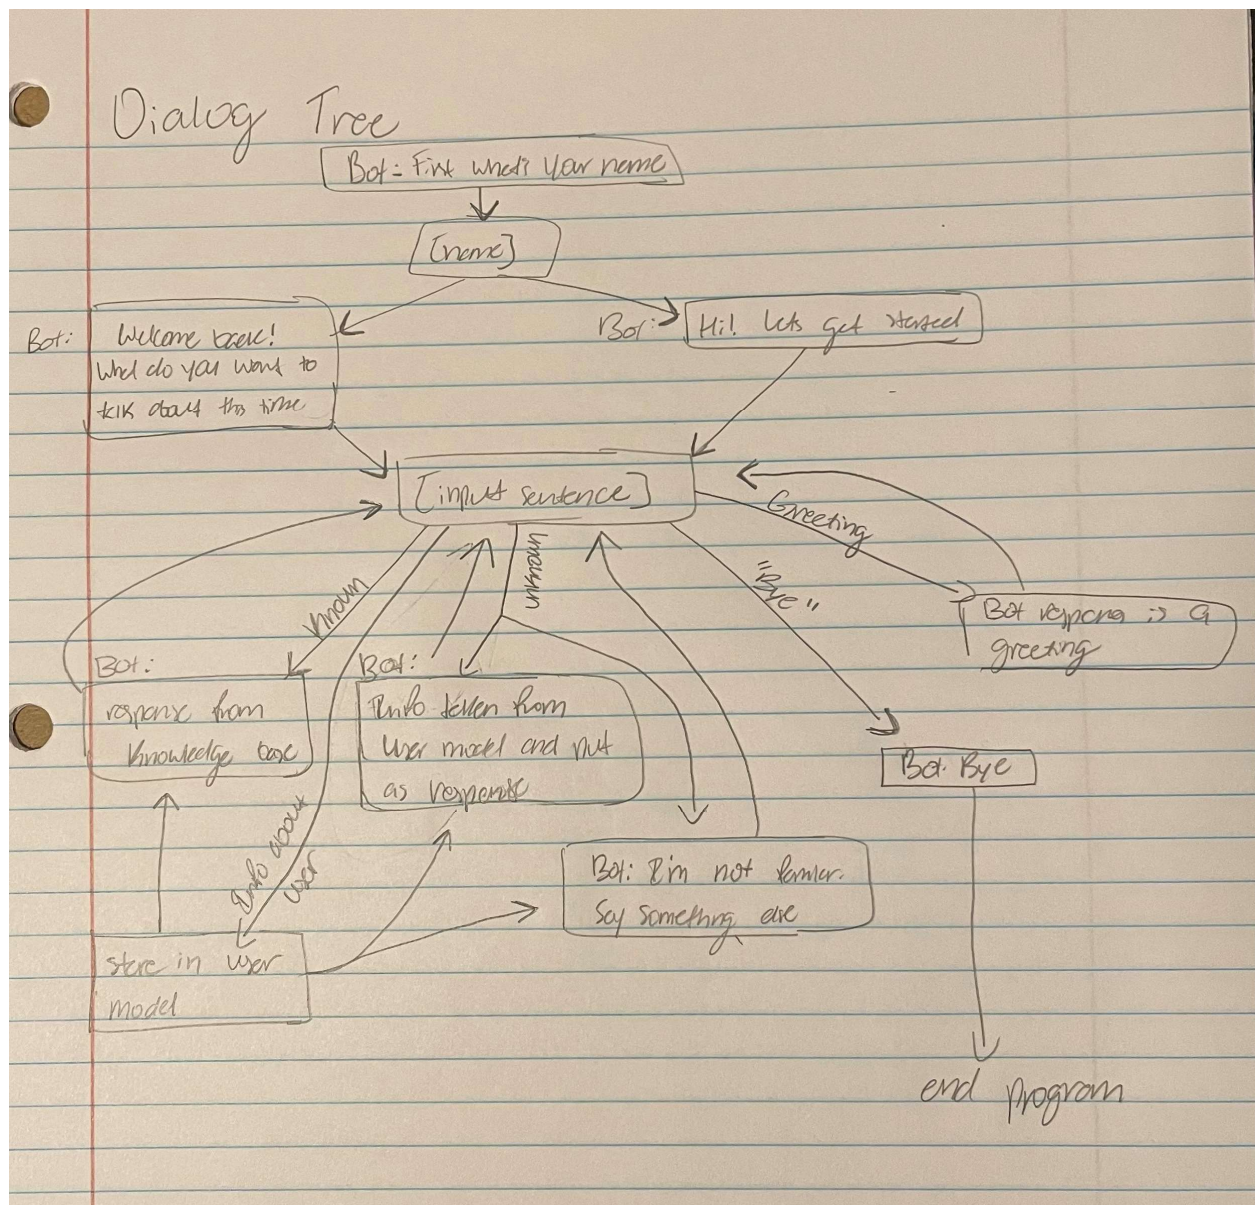 Dialog Tree
Bot: First what's your name
[name]
Bot:
Welcome back!
What do you want to
talk about this time
Bot:
Hi! Lets get started
[input sentence]
Greeting
"Bye"
unknown
known
Bot response is a
greeting
Bot:
response from
knowledge base
Bot:
Info taken from
user model and put
as response
Bot: Bye
Info about
user
Bot: I'm not familiar.
Say something else
store in user
model
end program